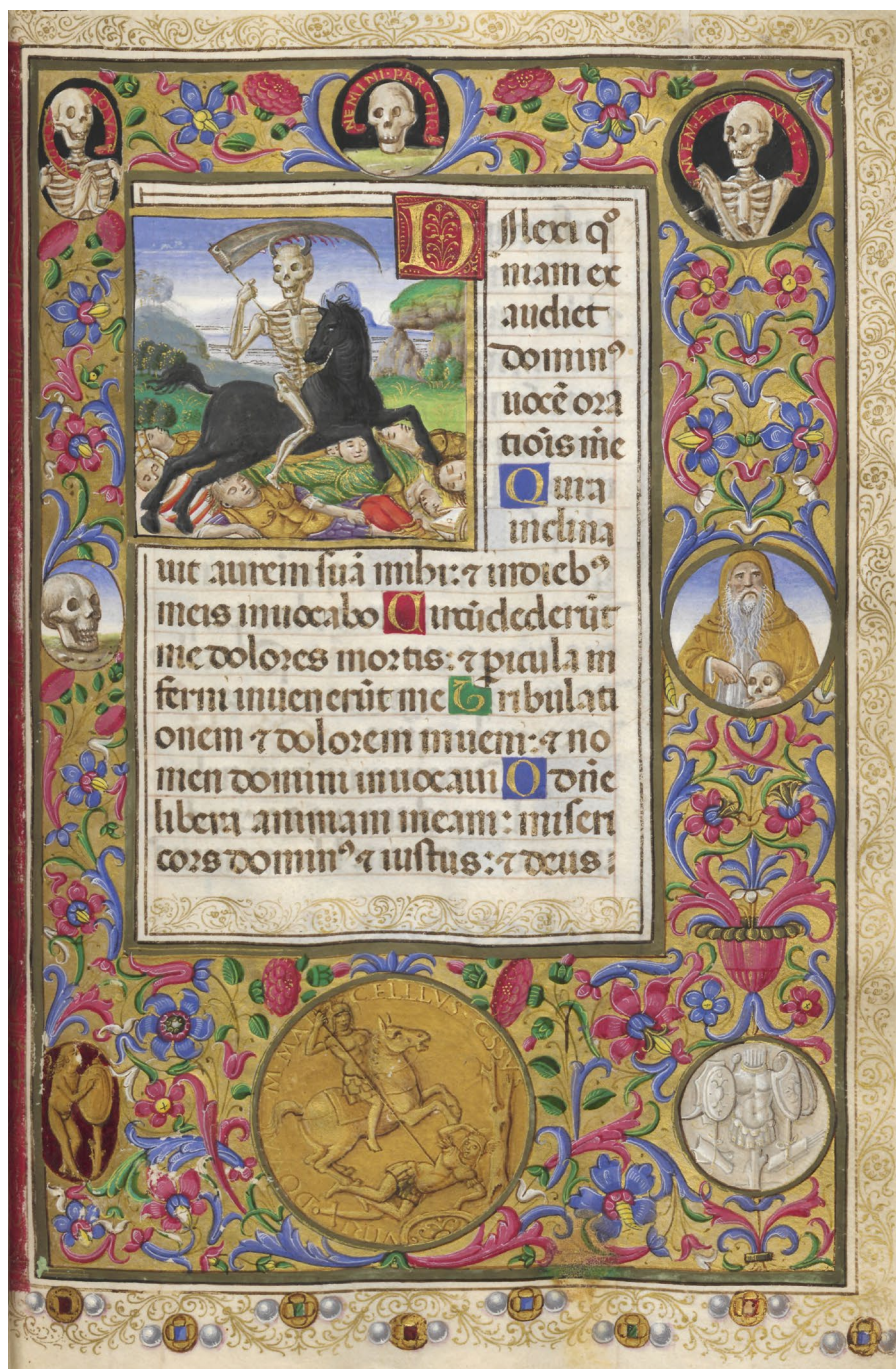 NEMINI·PARCIT
MEMETO MEI
Dilexi qꝰ
niam ex
audiet
dominꝰ
uocē ora
tiōis mīe
Quia
inclina
uit aurem suā mihi: ⁊ in diebꝰ
meis inuocabo Circūdederūt
me dolores mortis: ⁊ ꝑicula in
ferni inuenerūt me Tribulati
onem ⁊ dolorem inueni: ⁊ no
men domini inuocaui O dn̄e
libera animam meam: miseri
cors dominꝰ ⁊ iustus: ⁊ deus: